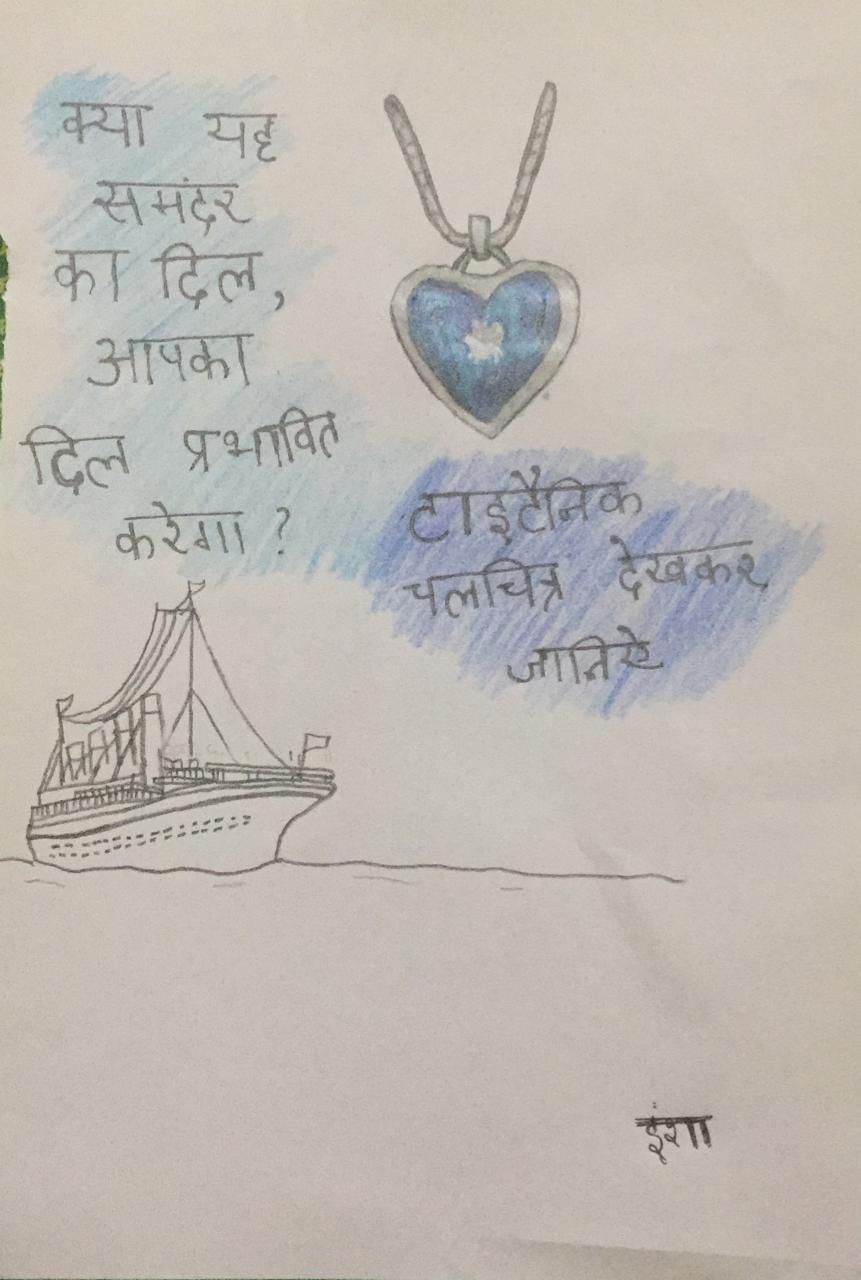 क्या यह
समंदर
का दिल,
आपका
दिल प्रभावित
करेगा ?
टाइटैनिक
चलचित्र देखकर
जानिऐ
इंशा